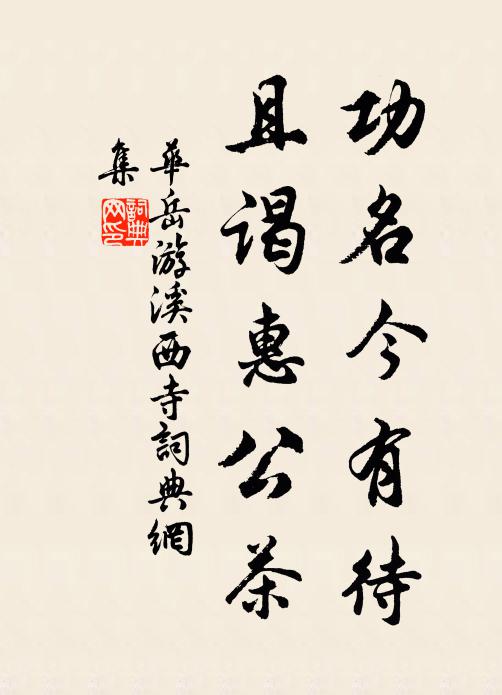 功名今有待
且谒惠公茶
華岳游溪西寺詞典網
集
詞典
网印